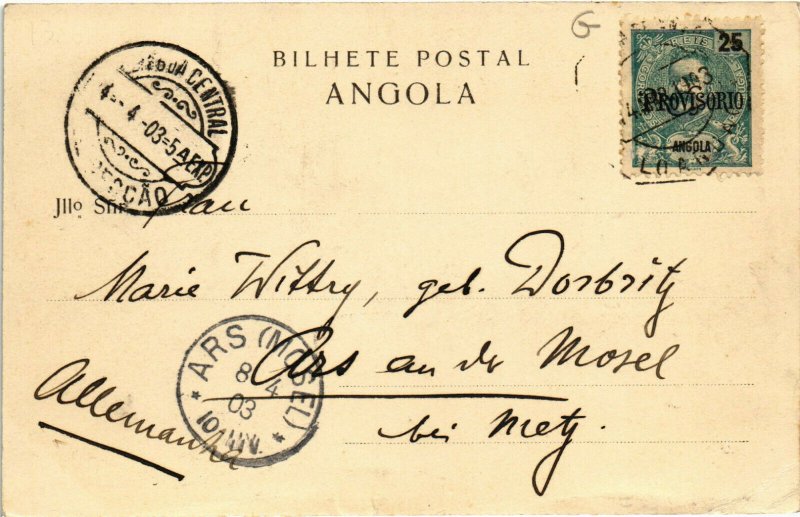 G
BILHETE POSTAL
ANGOLA
25
PROVISORIO
ANGOLA
CENTRAL
4-4-03=5
SECÇÃO
Jllº Snr Frau
Marie Wittry, geb. Dorbritz
Ars an der Mosel
bei Metz.
Allemanha
ARS (MOSEL)
8 4
03
10-11V.
LOANDA